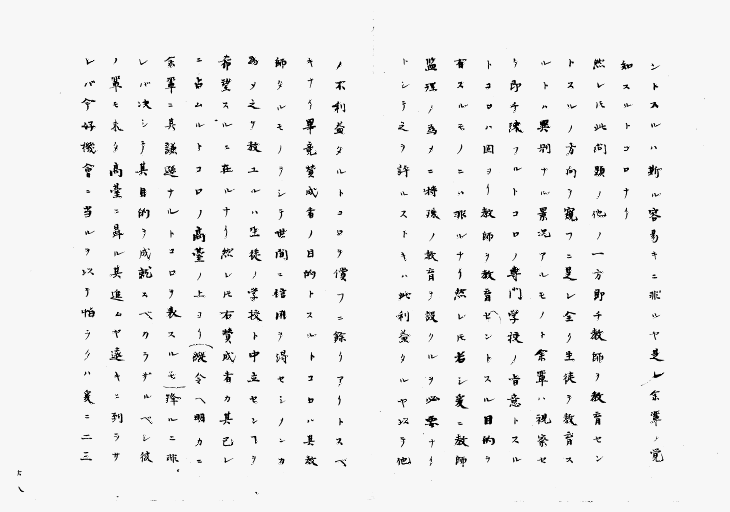 ントスルハ斯ル容易キニ非ルヤ是レ余輩ノ覚
知スルトコロナリ
然レ𪜈此問題ノ他ノ一方即チ教師ヲ教育セン
トスルノ方向ヲ窺フニ是レ全ク生徒ヲ教育ス
ルトハ異別ナル景況アルモノト余輩ハ視察セ
リ即チ陳フルトコロノ専門学校ノ旨意トスル
トコロハ固ヨリ教師ヲ教育セントスル目的ヲ
有スルモノニハ非ルナリ然レ𪜈若シ爰ニ教師
監理ノ為メニ特殊ノ教育ヲ設クルヲ必要ナリ
トシテ之ヲ許ルストキハ此利益タルヤ以テ他
ノ不利益タルトコロヲ償フニ餘リアリトスベ
キナリ畢竟賛成者ノ目的トスルトコロハ其教
師タルモノヲシテ世間ニ信用ヲ得セシメンカ
為メ之ヲ教ユルハ生徒ノ学校ト中立センヿヲ
希望スルニ在ルナリ然レ𪜈右賛成者カ其己レ
ニ占ムルトコロノ高臺ノ上ヨリ縦令ヘ明カニ
余輩ニ其謙遜ナルトコロヲ表スルモ降ルニ非
レバ决シテ其目的ヲ成就スベカラザルベシ彼
ノ輩モ未タ高臺ニ昇ル其進ムヤ遠キニ到ラサ
レバ今好機會ニ当ルヲ以テ恐ラクハ爰ニ二三